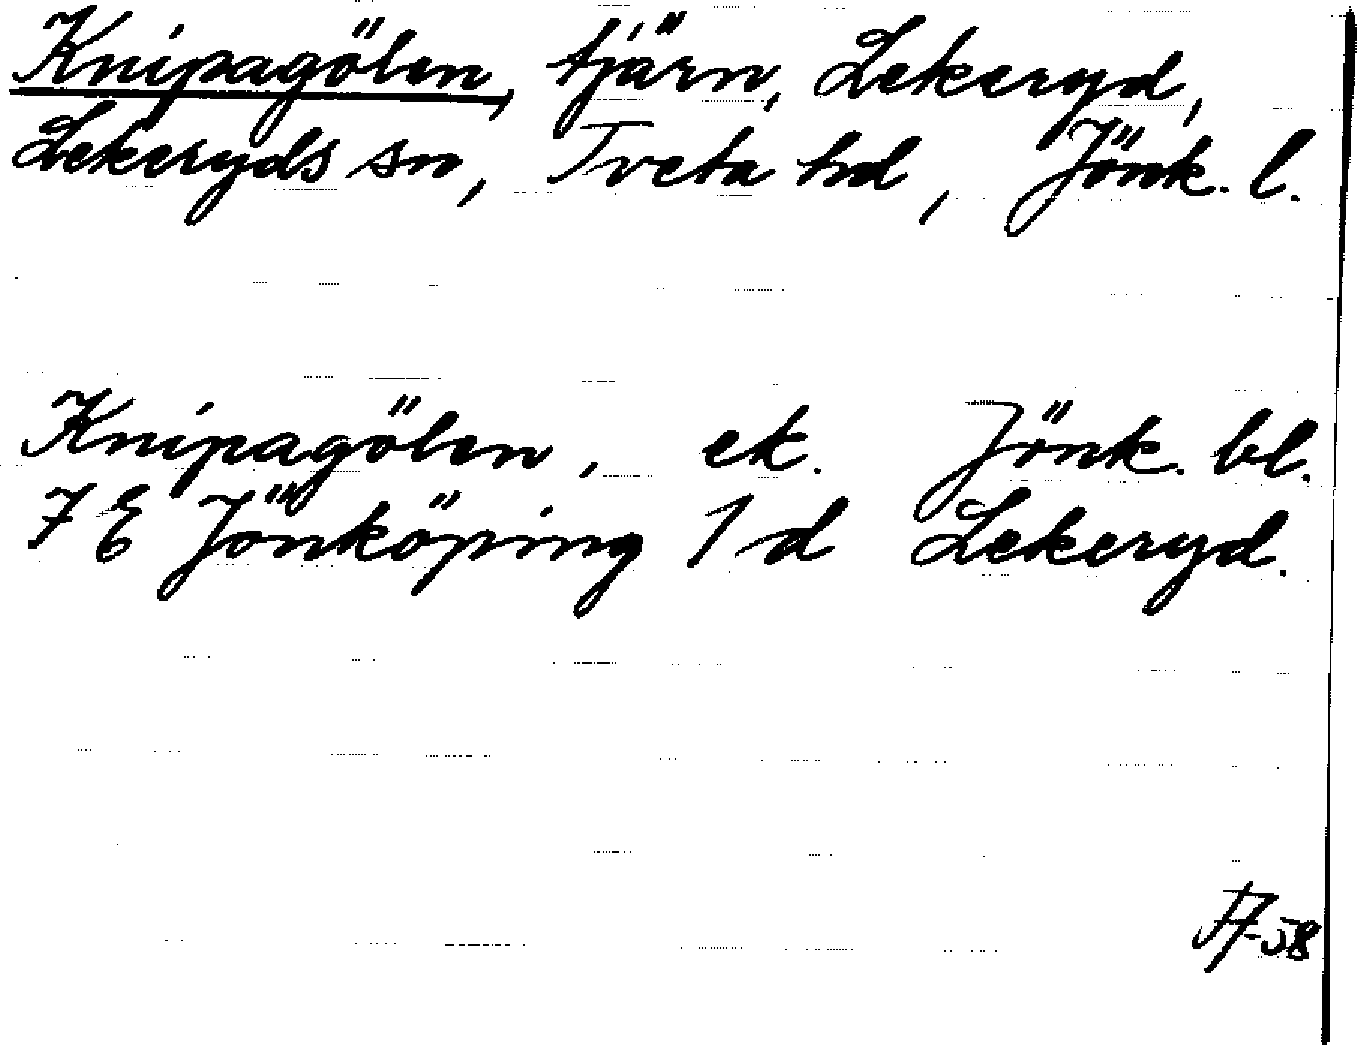 Knipagölen, tjärn, Lekeryd,
Lekeryds sn, Tveta hd, Jönk. l.
Knipagölen, ek. Jönk. bl.
7 E Jönköping 1 d Lekeryd.
58